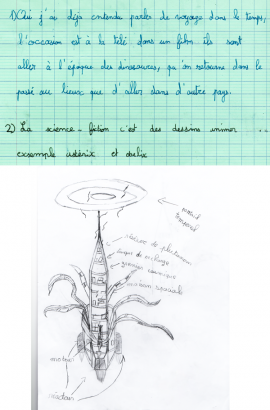 1) Oui j'ai déjà entendu parler de voyage dans le temps,
l'occasion est à la télé dans un film ils sont
aller à l'époque des dinosaures, qu'on retourne dans le
passé au lieux que d'aller dans d'autre pays.
2) La science-fiction c'est des dessins animer ...
exsemple astérix et obélix
portail
temporel
moteur
réacteur